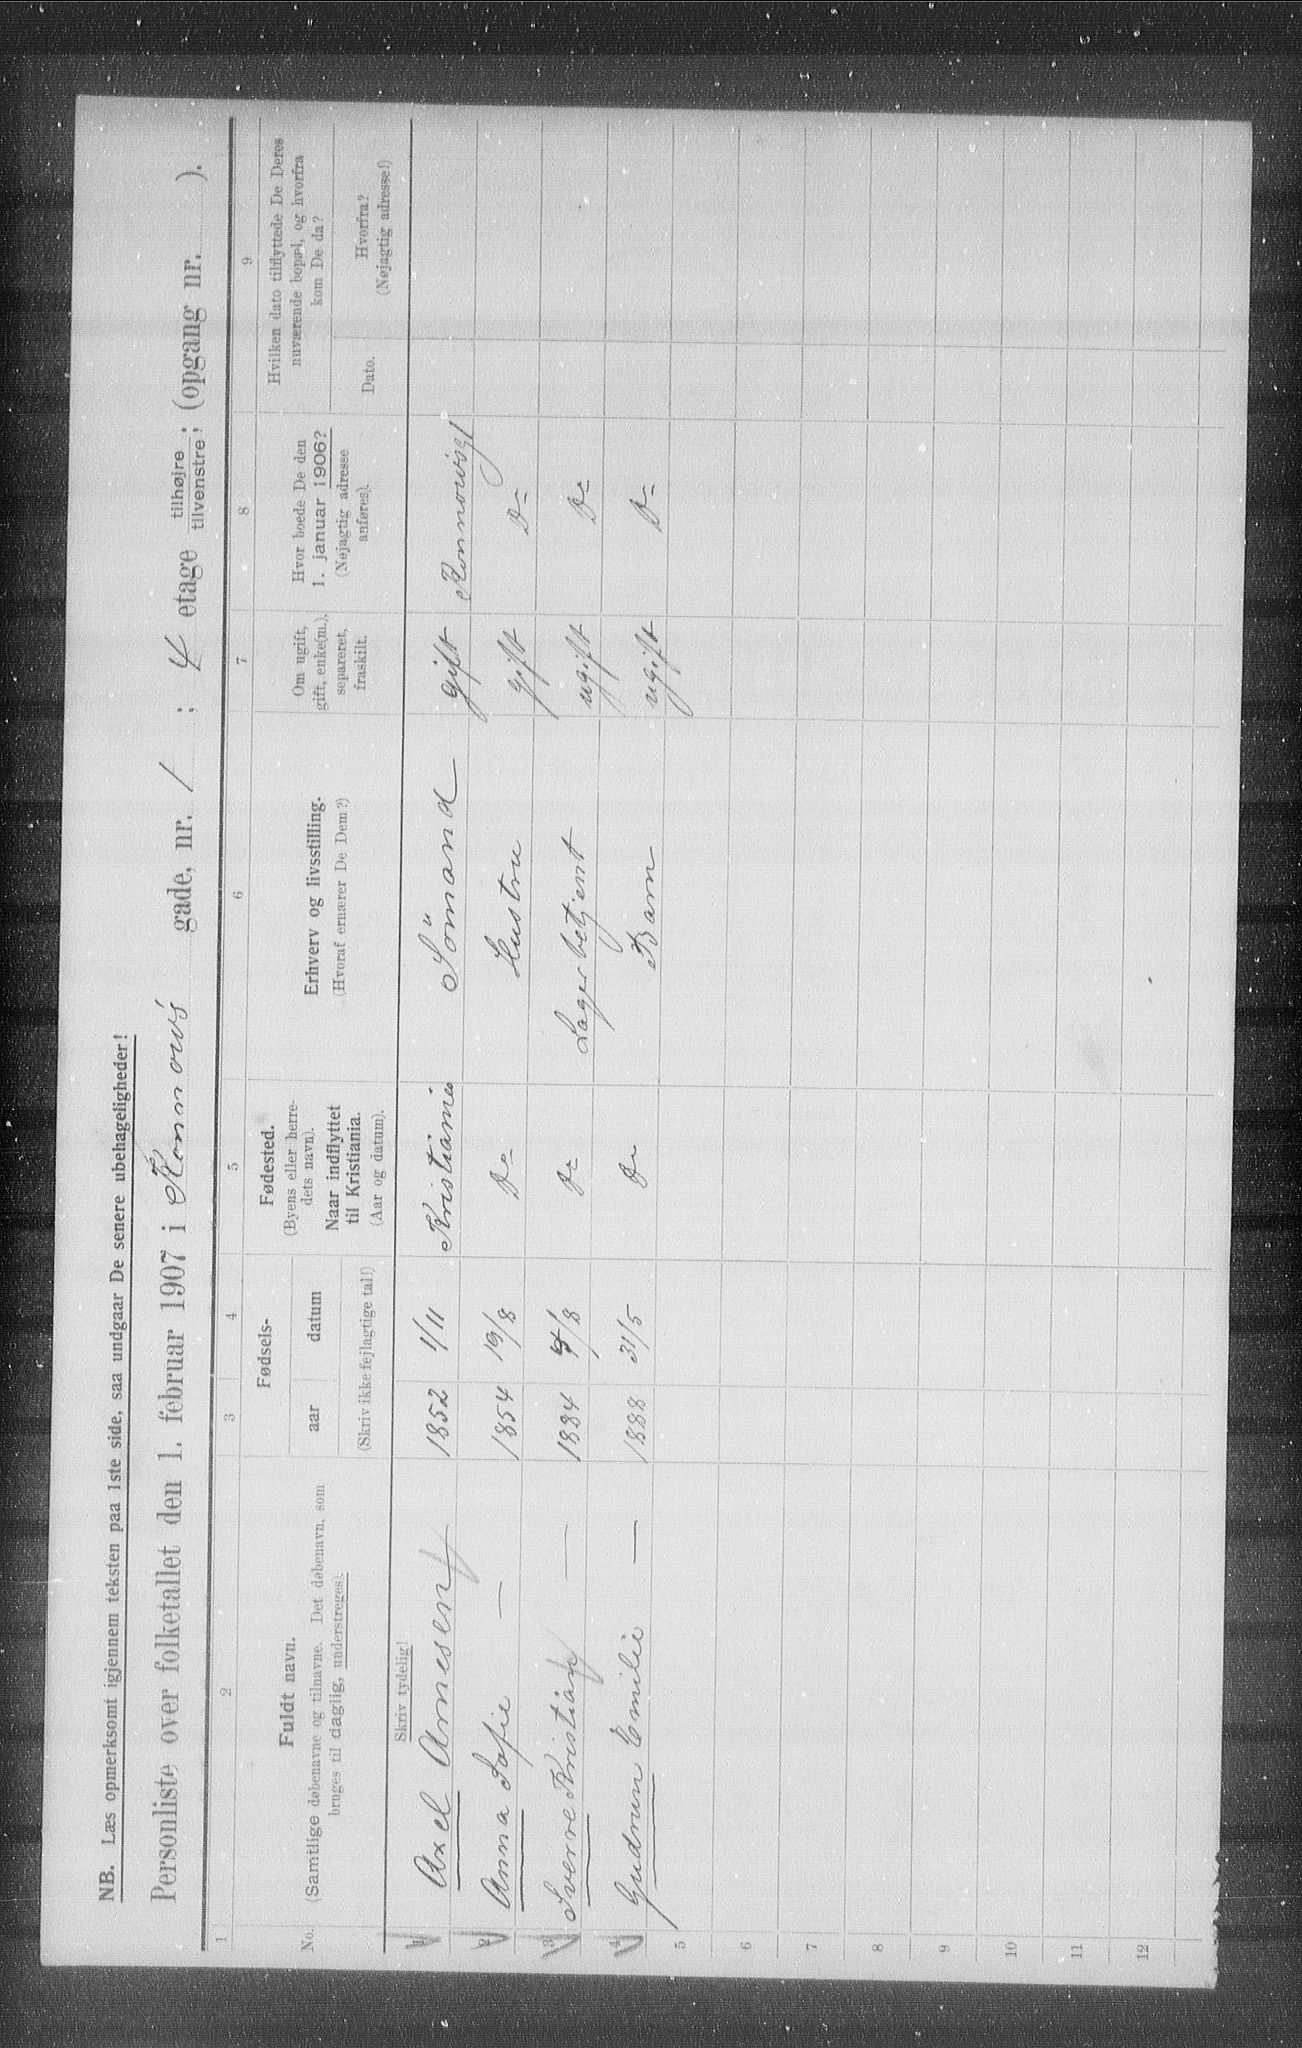 NB. Læs opmerksomt igjennem teksten paa 1ste side, saa undgaar De senere ubehageligheder!
Personliste over folketallet den 1. februar 1907 i Ronnows gade, nr. 1 ; 4 etage tilhøjre tilvenstre; (opgang nr. ).
1 2 3 4 5 6 7 8 9
No.
Fuldt navn.
(Samtlige døbenavne og tilnavne. Det døbenavn, som
bruges til daglig, understreges).
Fødsels-
aar datum
(Skriv ikke fejlagtige tal!)
Fødested.
(Byens eller herre-
dets navn).
Naar indflyttet
til Kristiania.
(Aar og datum).
Erhverv og livsstilling.
(Hvoraf ernærer De Dem?)
Om ugift,
gift, enke(m.),
separeret,
fraskilt.
Hvor boede De den
1. januar 1906?
(Nøjagtig adresse
anføres).
Hvilken dato tilflyttede De Deres
nuværende bopæl, og hvorfra
kom De da?
Dato.
Hvorfra?
(Nøjagtig adresse!)
Skriv tydelig!
1 Axel Arnesen 1852 1/11 Kristiania Sömand gift Ronnowsg 1
2 Anna Sofie — 1854 19/8 Do Hustru gift Do
3 Sverre Kristian — 1884 /8 Do Lagerbetjent ugift Do
4 Gudrun Emilie — 1888 31/5 Do Barn ugift Do
5
6
7
8
9
10
11
12